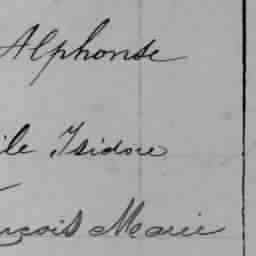 Alphonse
ile Isidore
nçois Marie